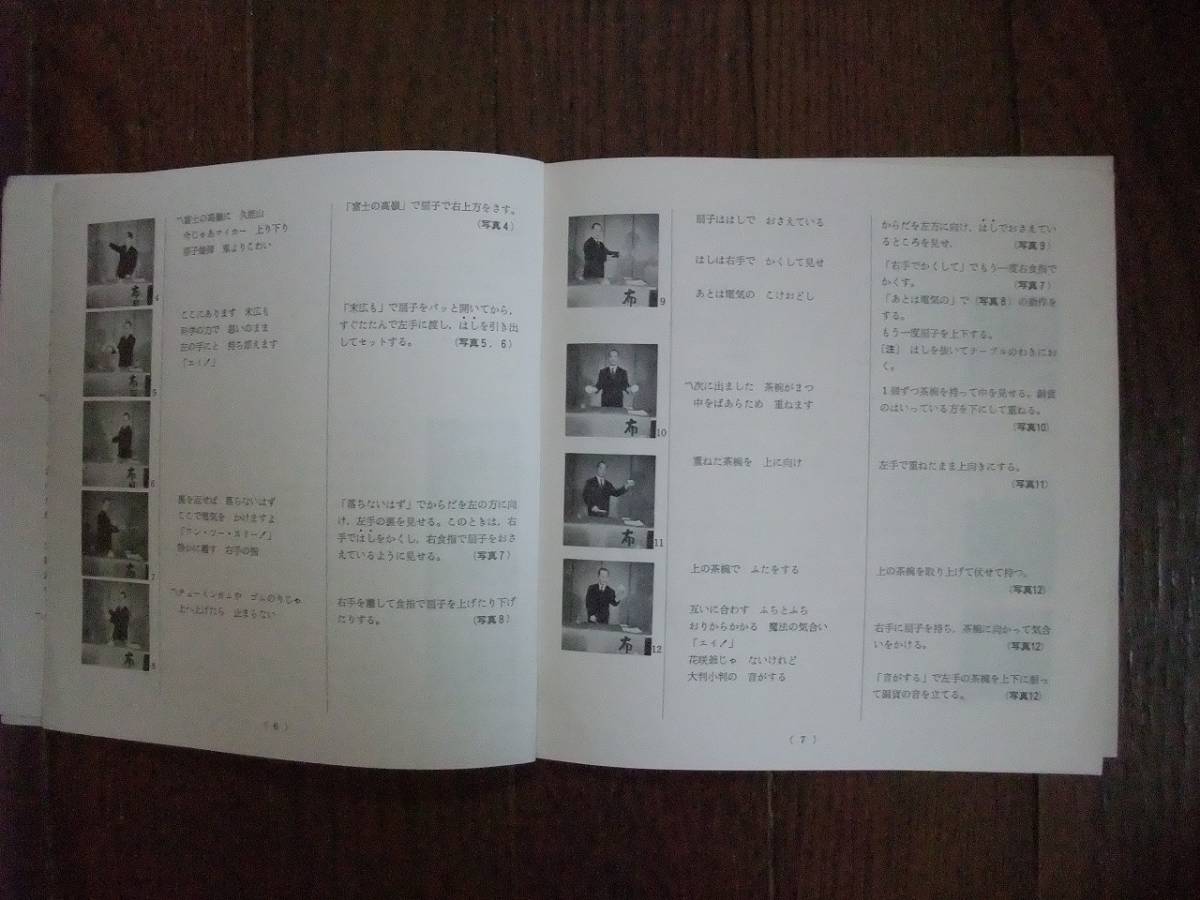 〽富士の高嶺に 久能山
今じゃあマイカー 上り下り
「富士の高嶺」で扇子で右上方をさす。
(写真4)
布
4
ここにあります 末広も
科学の力で 思いのまま
左の手にと 持ち添えます
「エイ!」
「末広も」で扇子をパッと開いてから,
すぐたたんで左手に渡し,はしを引き出
してセットする。 (写真5,6)
布
5
布
6
裏を返せば 落ちないはず
ここで電気を かけますよ
「ワン・ツー・スリー!」
静かに離す 右手の指
「落ちないはず」でからだを左の方に向
け,左手の裏を見せる。このときは,右
手ではしをかくし,右食指で扇子をおさ
えているように見せる。 (写真7)
布
7
〽チューインガムや ゴムのりじゃ
上へ上げたら 止まらない
右手を離して食指で扇子を上げたり下げ
たりする。 (写真8)
布
8
(6)
扇子ははしで おさえている
からだを左方に向け,はしでおさえてい
るところを見せ, (写真9)
はしは右手で かくして見せ
「右手でかくして」でもう一度右食指で
かくす。 (写真7)
あとは電気の こけおどし
「あとは電気の」で(写真8)の動作を
する。
もう一度扇子を上下する。
〔注〕 はしを抜いてテーブルのわきにお
く。
布
9
〽次に出ました 茶椀が2つ
中をばあらため 重ねます
1個ずつ茶椀を持って中を見せる。銅貨
のはいっている方を下にして重ねる。
(写真10)
布
10
重ねた茶椀を 上に向け
左手で重ねたまま上向きにする。
(写真11)
布
11
上の茶椀で ふたをする
上の茶椀を取り上げて伏せて持つ。
(写真12)
互いに合わす ふちとふち
おりからかかる 魔法の気合い
「エイ!」
右手に扇子を持ち,茶椀に向かって気合
いをかける。 (写真12)
花咲爺じゃ ないけれど
大判小判の 音がする
「音がする」で左手の茶椀を上下に振っ
て銅貨の音を立てる。 (写真12)
布
12
(7)